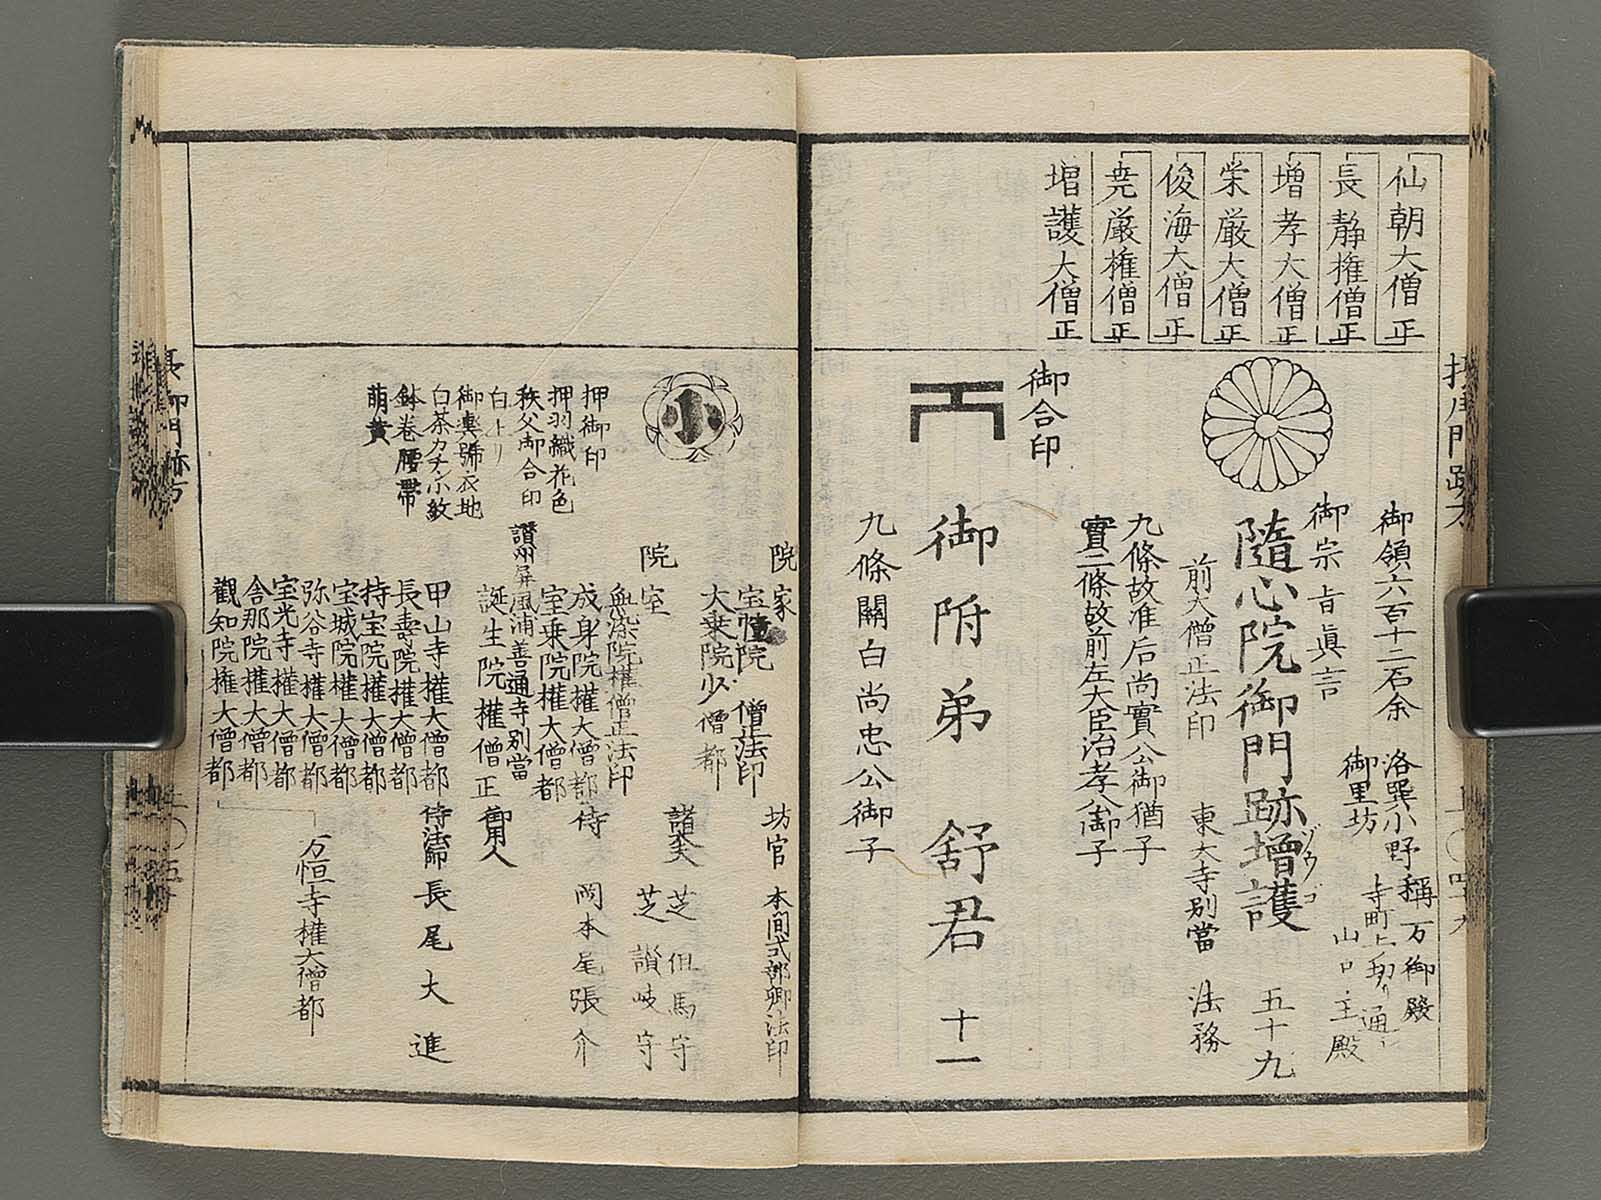 仙朝大僧正
長静権僧正
増孝大僧正
栄厳大僧正
俊海大僧正
尭厳権僧正
増護大僧正
御領六百十二石余
洛巽小野称万御殿
御里坊
寺町上切り通シ
山口主殿
御宗旨眞言
隨心院御門跡増護
ゾウゴ
五十九
前大僧正法印
東大寺別當
法務
九條故准后尚實公御猶子
實二條故前左大臣治孝公御子
御合印
御附弟
舒君
十一
九條關白尚忠公御子
小
押御印
押羽織花色
秩父御合印
白上リ
御輿號衣地
白茶カチン小紋
鉢巻腰帯
萌黄
院家
院 僧正法印
大乗院少僧都
院室
染院權僧正法印
成身院權大僧都
宝乗院權大僧都
讃州屏風浦善通寺別當
誕生院權僧正
甲山寺權大僧都
長壽院權大僧都
持宝院權大僧都
宝城院權大僧都
弥谷寺權大僧都
宝光寺權大僧都
舎那院權大僧都
觀知院權大僧都
万恒寺權大僧都
坊官
本間式部卿法印
諸大夫
芝但馬守
芝讃岐守
侍
岡本尾張介
御用人
侍法師
長尾大進
長御門跡方